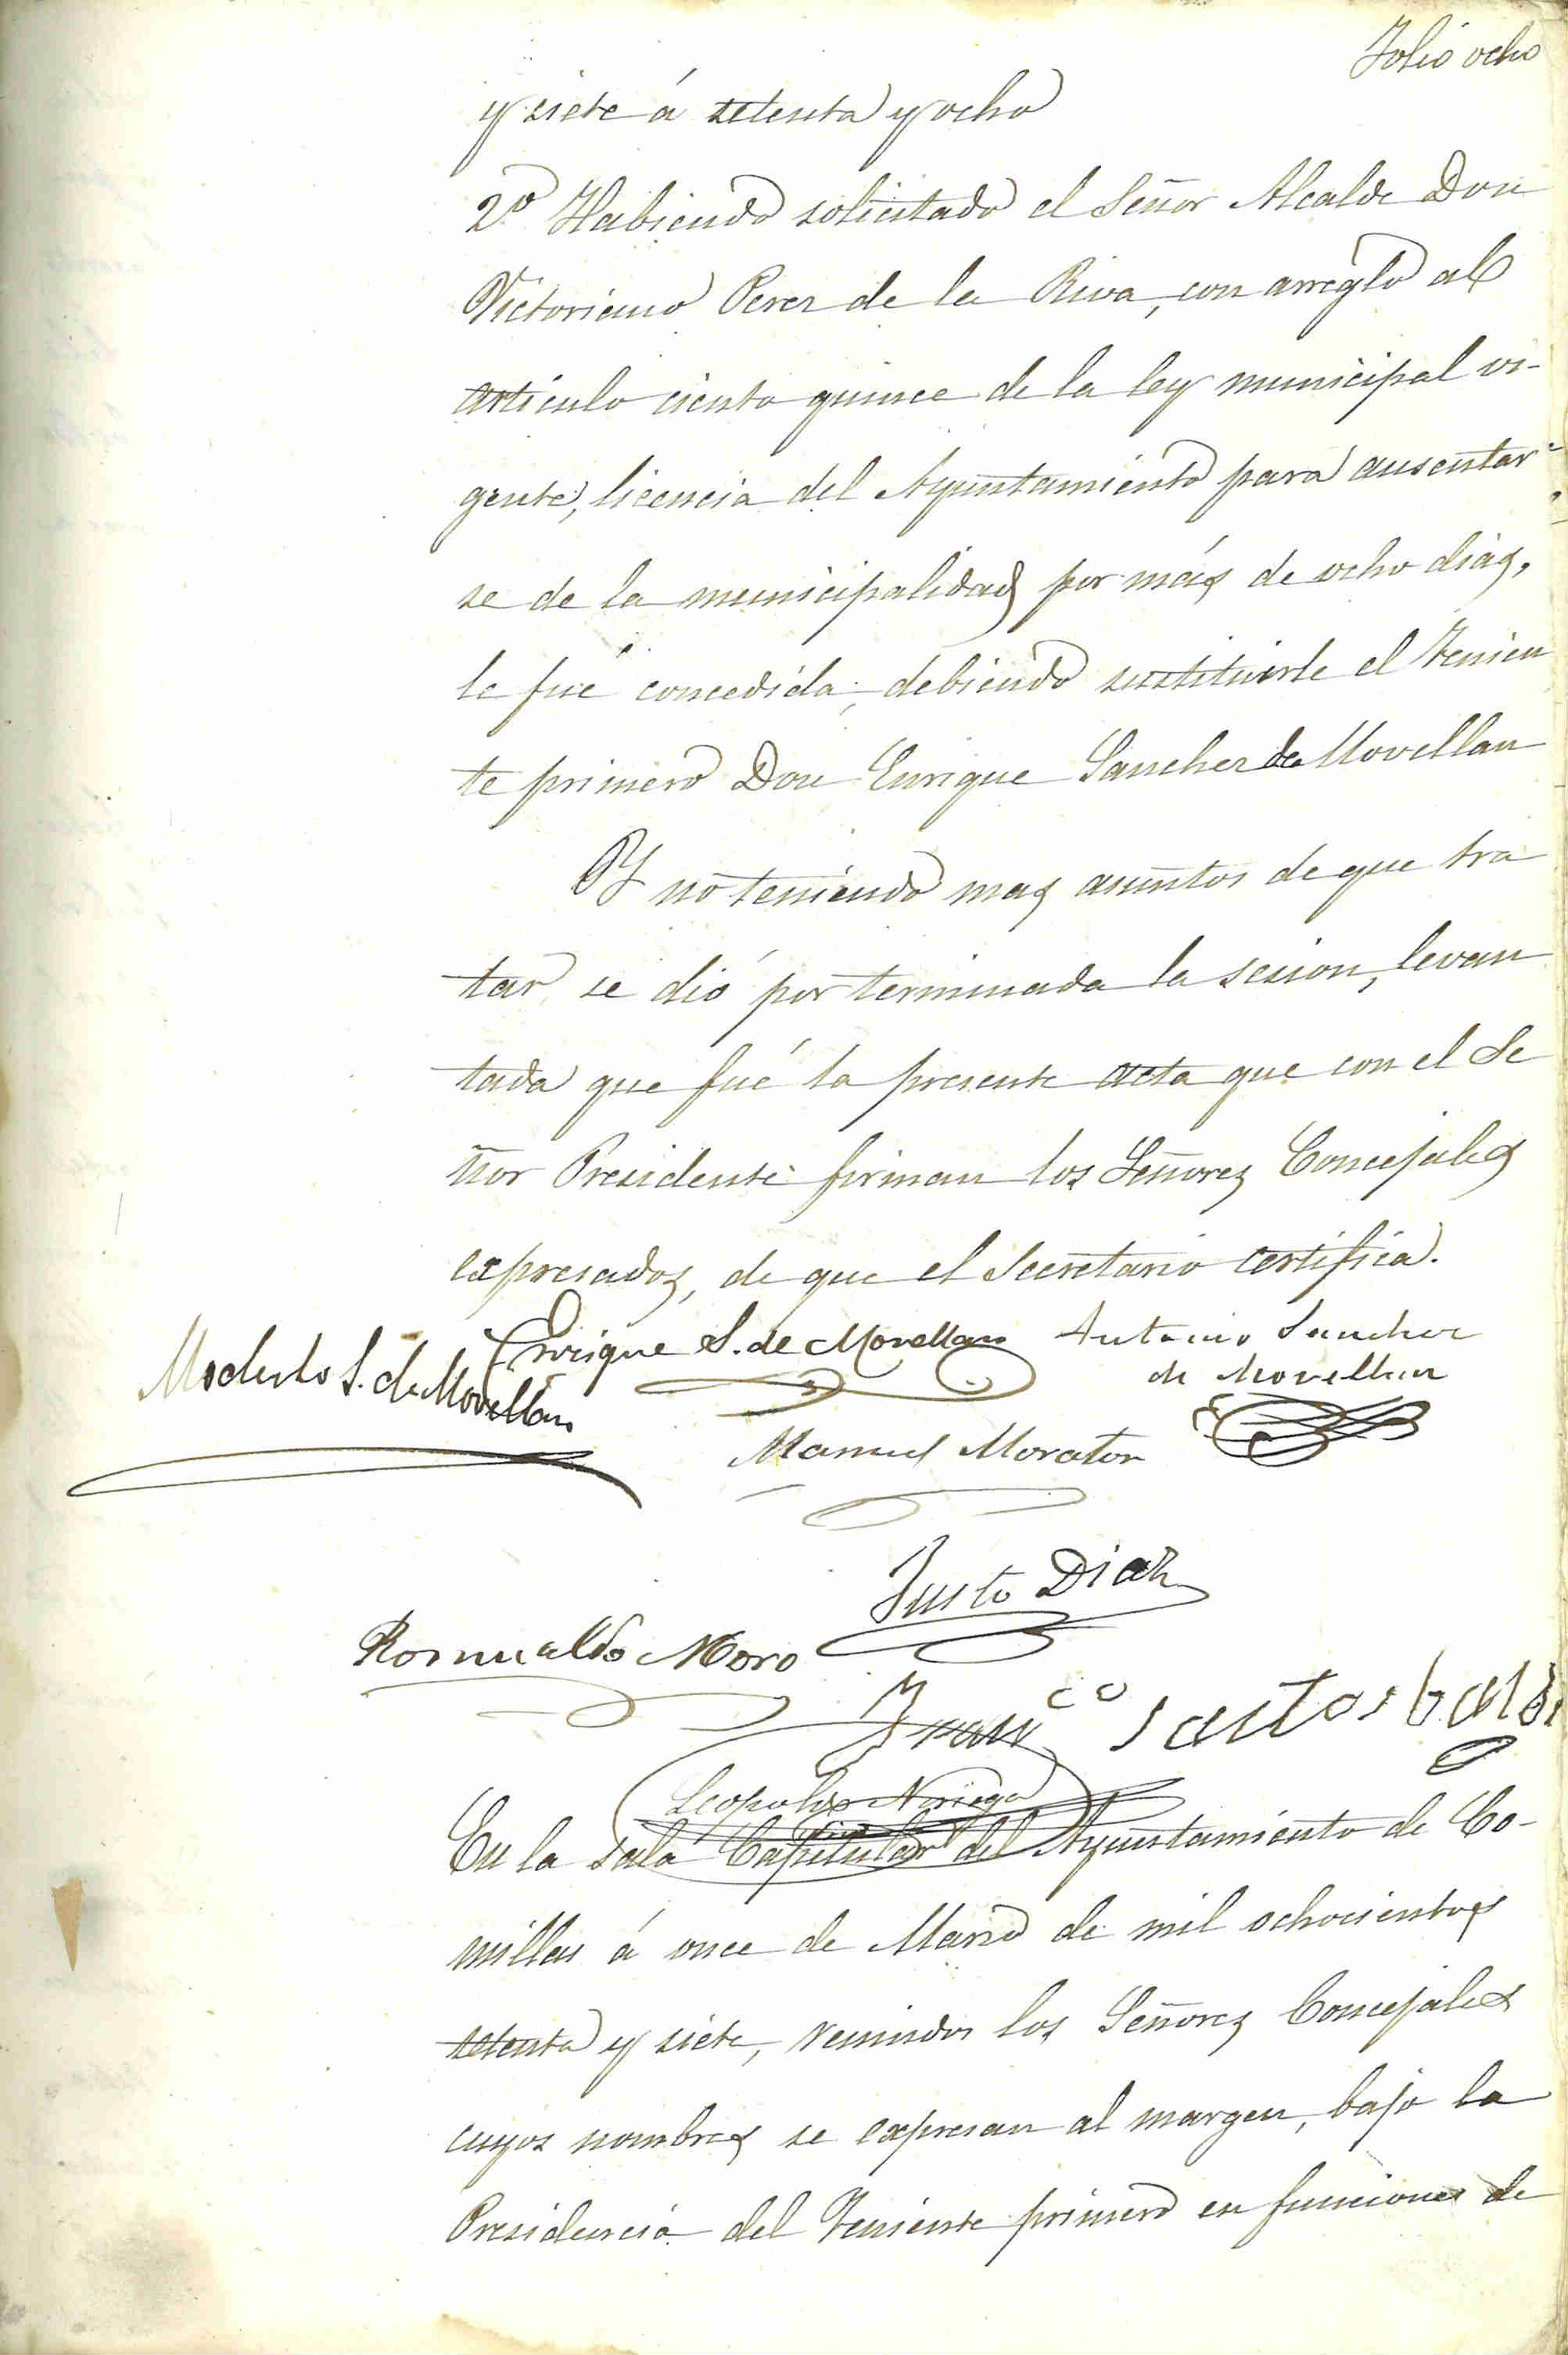 Folio ocho
y siete á setenta y ocho
2º Habiendo solicitado el Señor Alcalde Don
Victoriano Perez de la Riva, con arreglo al
artículo ciento quince de la ley municipal vi-
gente, licencia del Ayuntamiento para ausentar-
se de la municipalidad por más de ocho dias,
le fué concedida, debiendo sustituirle el Tenien
te primero Don Enrique Sanchez de Movellan
Y no teniendo mas asuntos de que tra
tar se dió por terminada la sesion, levan
tada que fué la presente acta que con el Se
ñor Presidente firman los Señores Concejales
expresados, de que el Secretario certifica.
Modesto S. de Movellan
Enrique S. de Movellan
Antonio Sanchez
de Movellan
Manuel Morator
Justo Diaz
Romualdo Moro
Franco Santos
Leopoldo Noriega
En la sala Capitular del Ayuntamiento de Co-
millas á once de Marzo de mil ochocientos
setenta y siete, reunidos los Señores Concejales
cuyos nombres se expresan al margen, bajo la
Presidencia del Teniente primero en funciones de